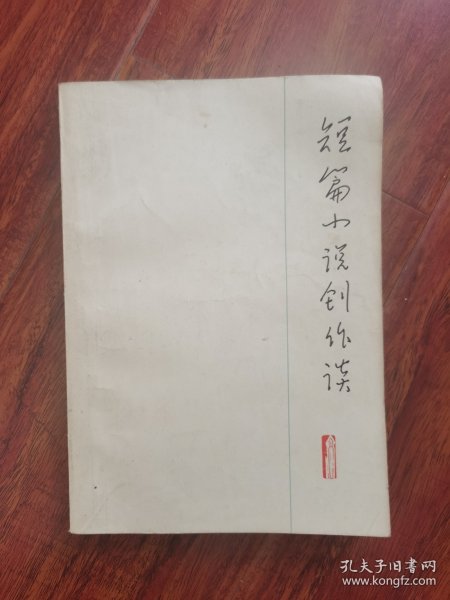 短篇小说创作谈
孔夫子旧书网
www.kongfz.com